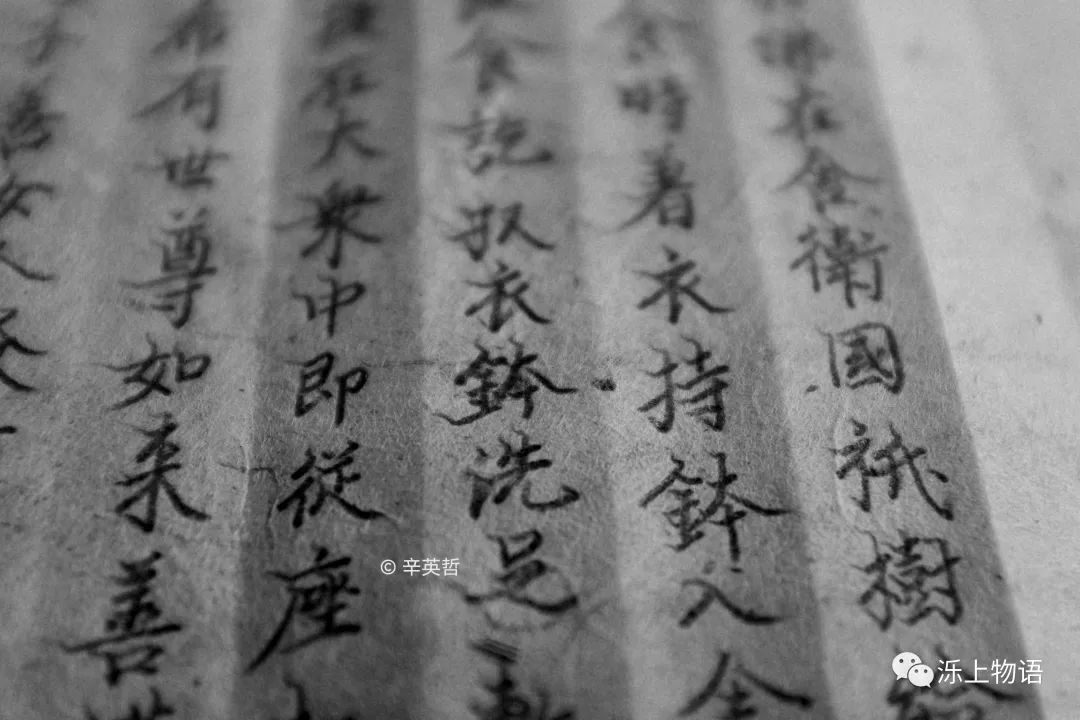 佛在舍衛國祇樹給
食時着衣持鉢入舍
食訖収衣鉢洗足敷
在大衆中即從座
希有世尊如来善
子善女人
© 辛英哲
泺上物语